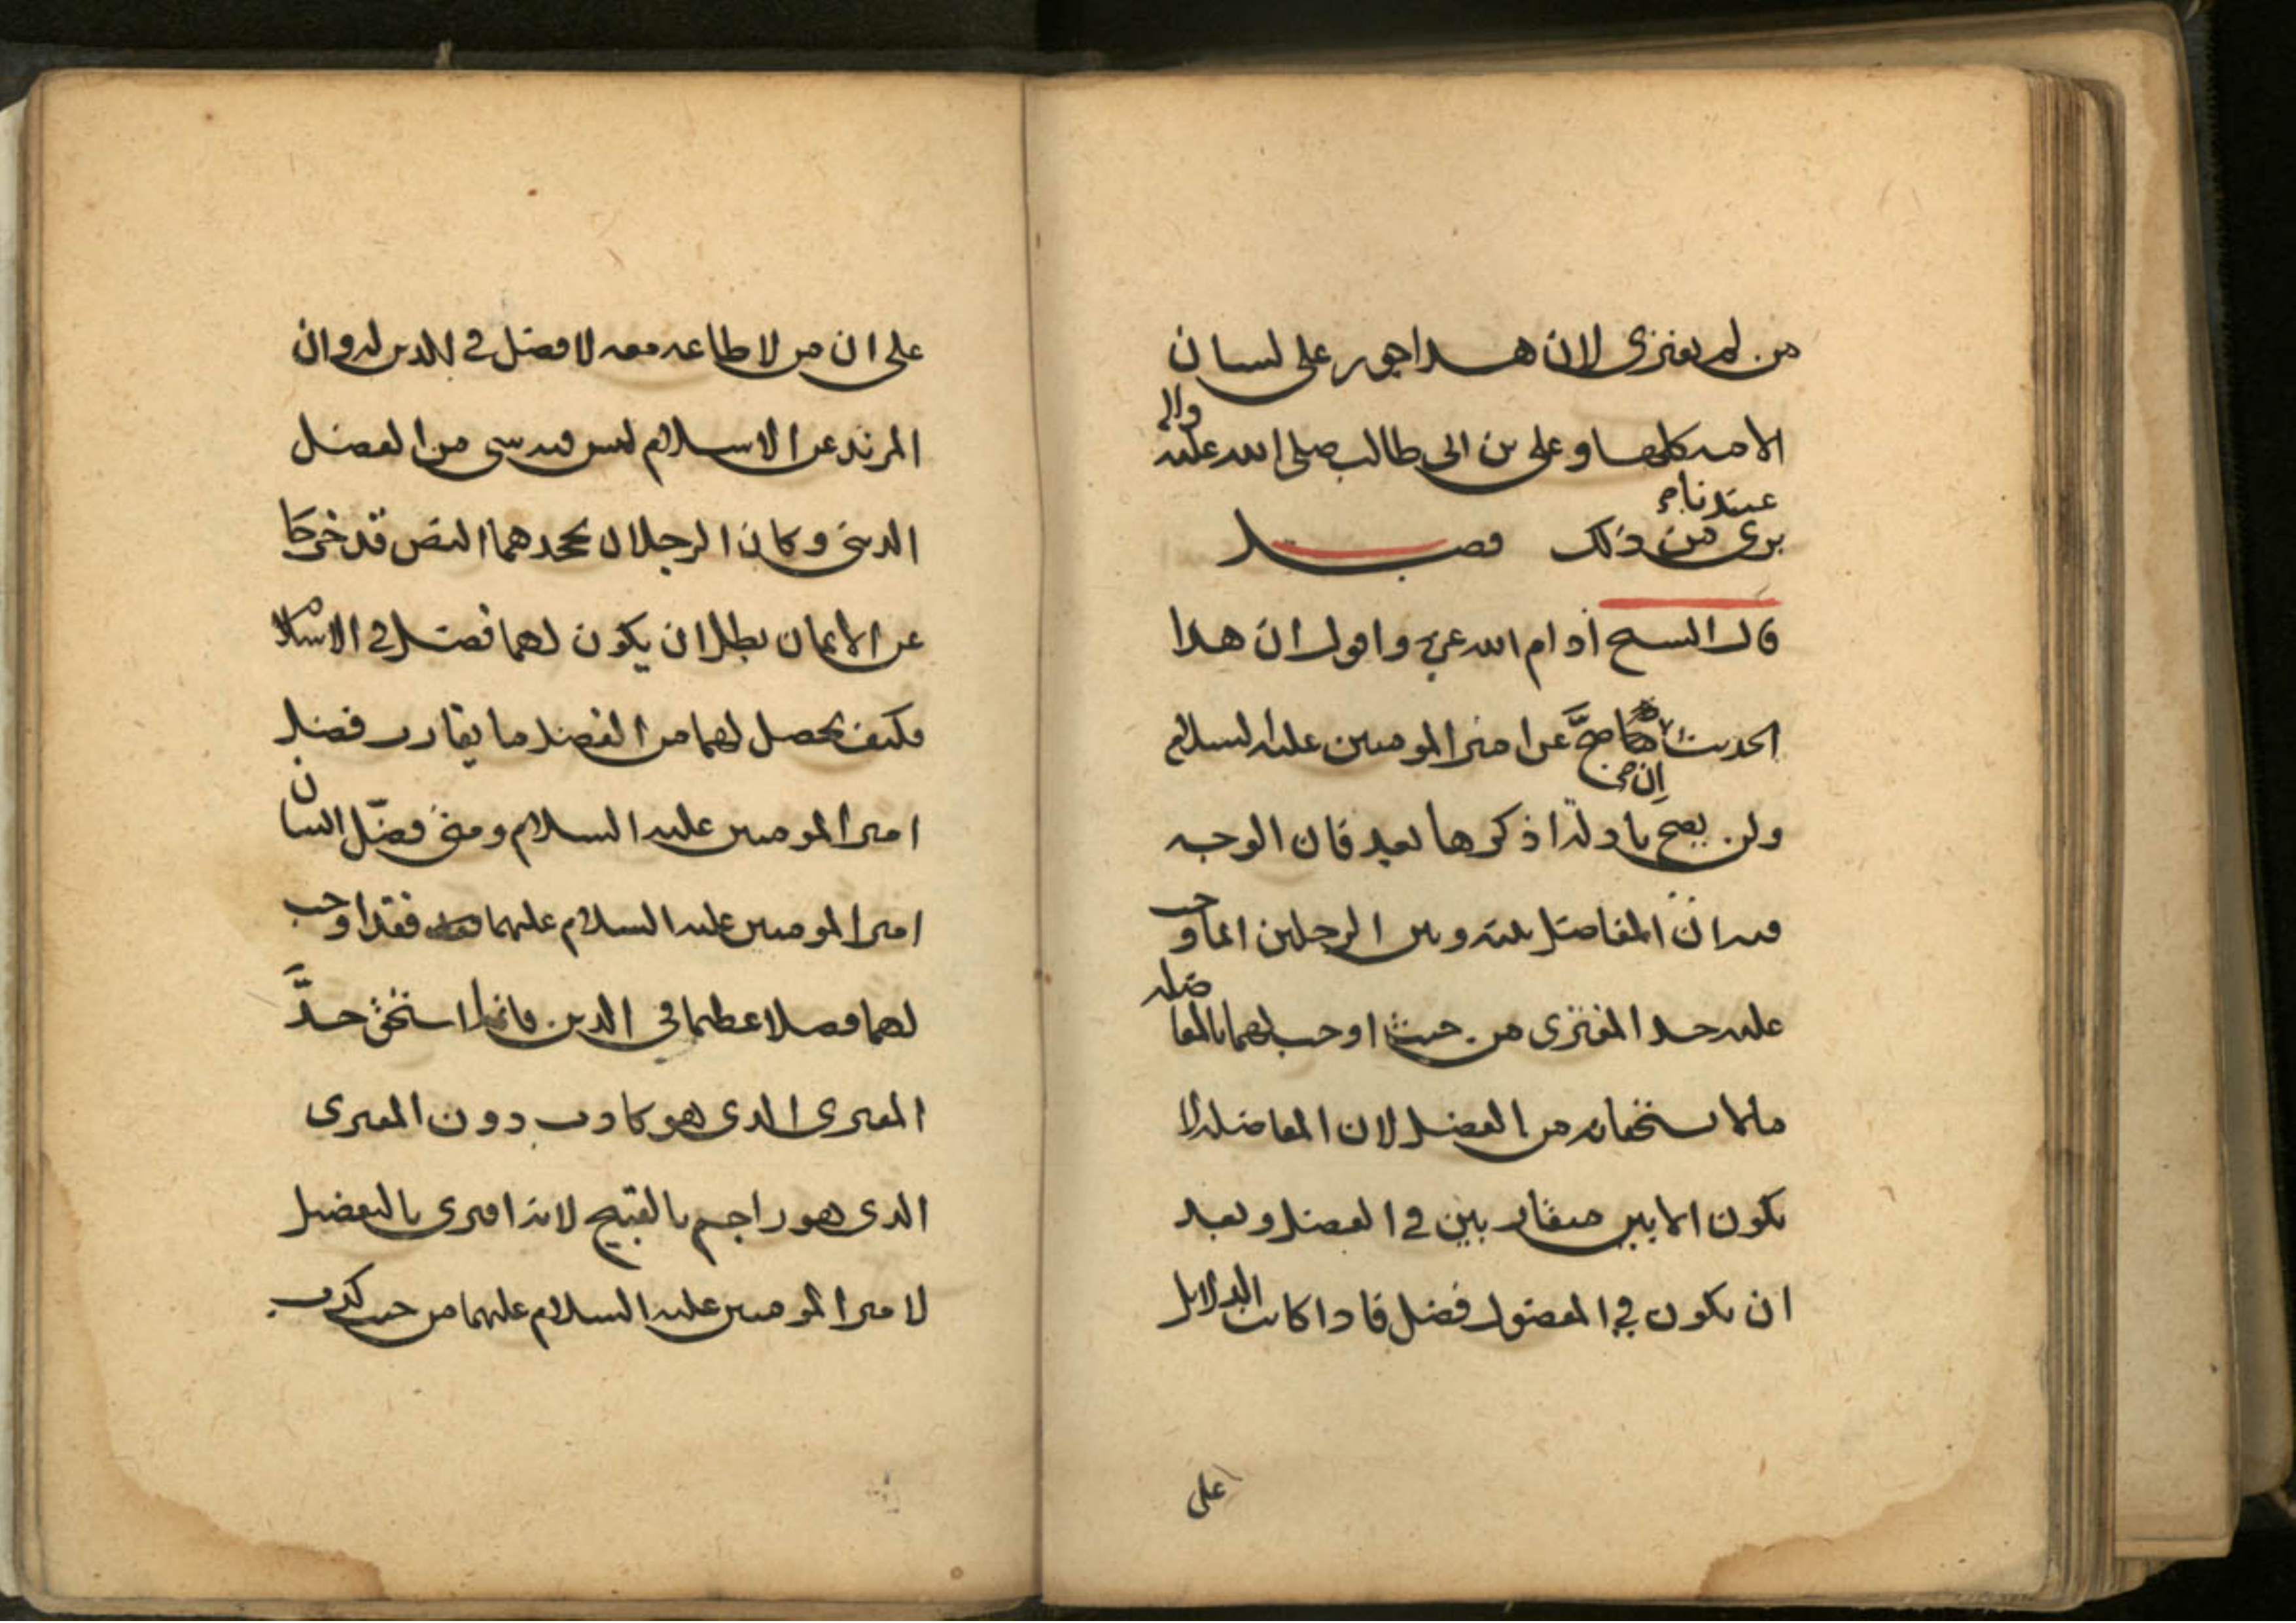 من لم يفتري لان هذا جور على لسان
الامه كلها وعلى بن ابي طالب صلى الله عليه واله
برى من ذلك عندنا فصل
قال الشيخ ادام الله عزه واقول ان هذا
الحديث صح عن امير المومنين عليه السلام
ولن يصح بادلة اذكرها بعد فان الوجه
فيه ان المفاضل بينه وبين الرجلين انما وجب
عليه حد المفتري من حيث اوجب لهما بالمفاضله
مالا يستحقانه من الفضل لان المفاضله لا
يكون الا بين متقاربين في الفضل وبعد
ان يكون في المفضول فضل فاذا كانت الدلائل
على
على ان من لا طاعه معه لا فضل في الدين له وان
المرتد عن الاسلام ليس فيه شي من الفضل
الديني وكان الرجلان بجحدهما النص قد خرجا
عن الايمان بطل ان يكون لهما فضل في الاسلام
فكيف يحصل لهما من الفضل ما يقارب فضل
امير المومنين عليه السلام ومتى فضل انسان
امير المومنين عليه السلام عليهما فقد اوجب
لهما فضلا عظيما في الدين فانما استحق حد
المفتري الذي هو كاذب دون المفتري
الذي هو راجم بالقبيح لانه افترى بالتفضيل
لامير المومنين عليه السلام عليهما من حيث كذب